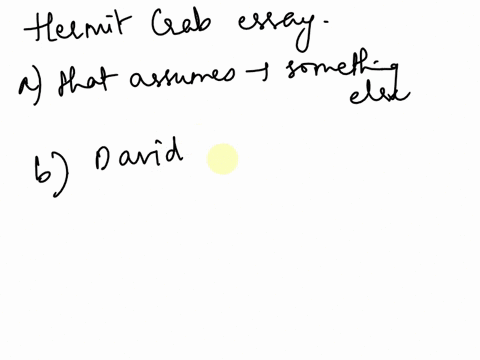 Hermit Crab essay.
a) that assumes → something
else
b) David